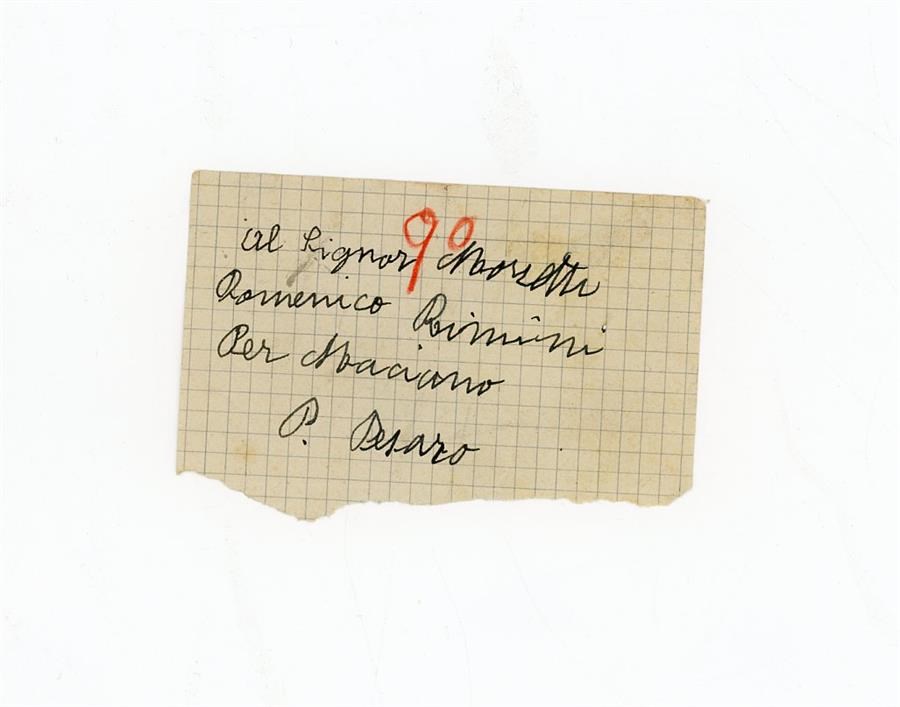 9º
Al Signor Moretti
Domenico Rimini
Per Maciano
P. Pesaro